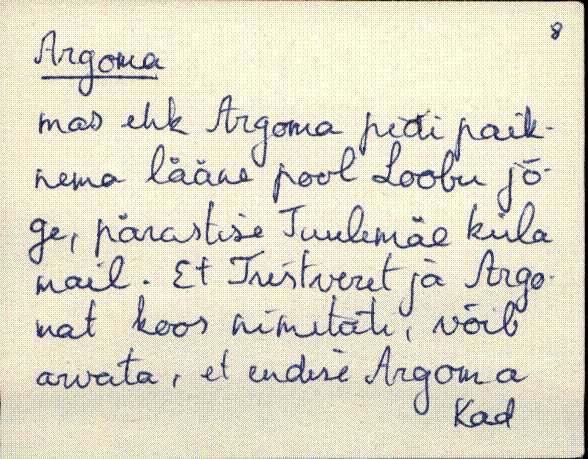 8
Argoma
mas ehk Argoma pidi paik-
nema lääne pool Loobu jõ-
ge, pärastise Tuulemäe küla
mail. Et Tristveret ja Argo-
mat koos nimetati, võib
arvata, et endise Argoma
Kad